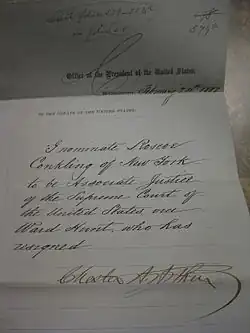 Office of the President of the United States.
February 24th 1882
TO THE SENATE OF THE UNITED STATES.
I nominate Roscoe
Conkling of New York
to be Associate Justice
of the Supreme Court of
the United States vice
Ward Hunt, who has
resigned
Chester A. Arthur